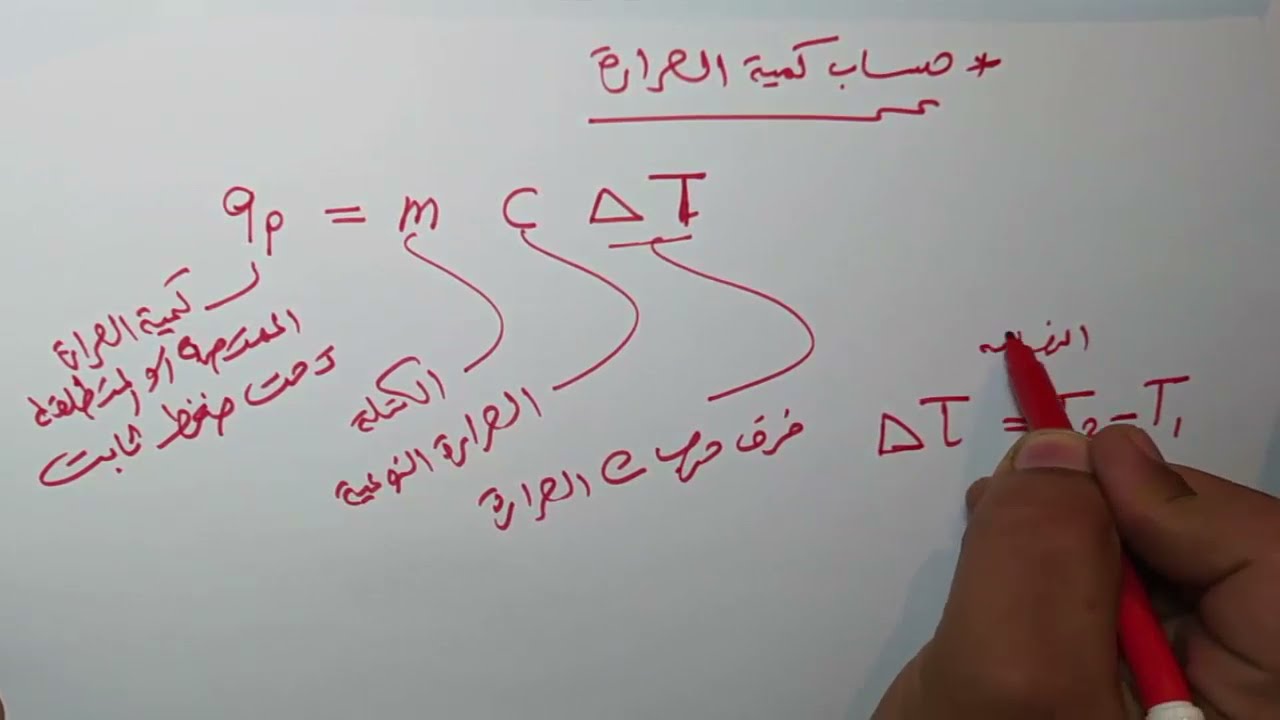 * حساب كمية الحرارة
qₚ = m C ΔT
كمية الحرارة
الممتصة او المنطلقة
تحت ضغط ثابت
الكتلة
الحرارة النوعية
فرق درجات الحرارة
ΔT = T₂ - T₁